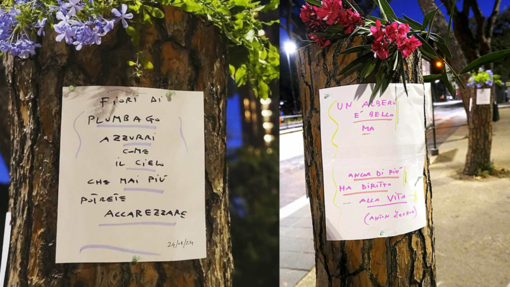 FIORI DI
PLUMBAGO
AZZURRI
COME
IL CIELO
CHE MAI PIÙ
POTRETE
ACCAREZZARE
UN ALBERO
E' BELLO
MA
ANCOR DI PIÙ
HA DIRITTO
ALLA VITA